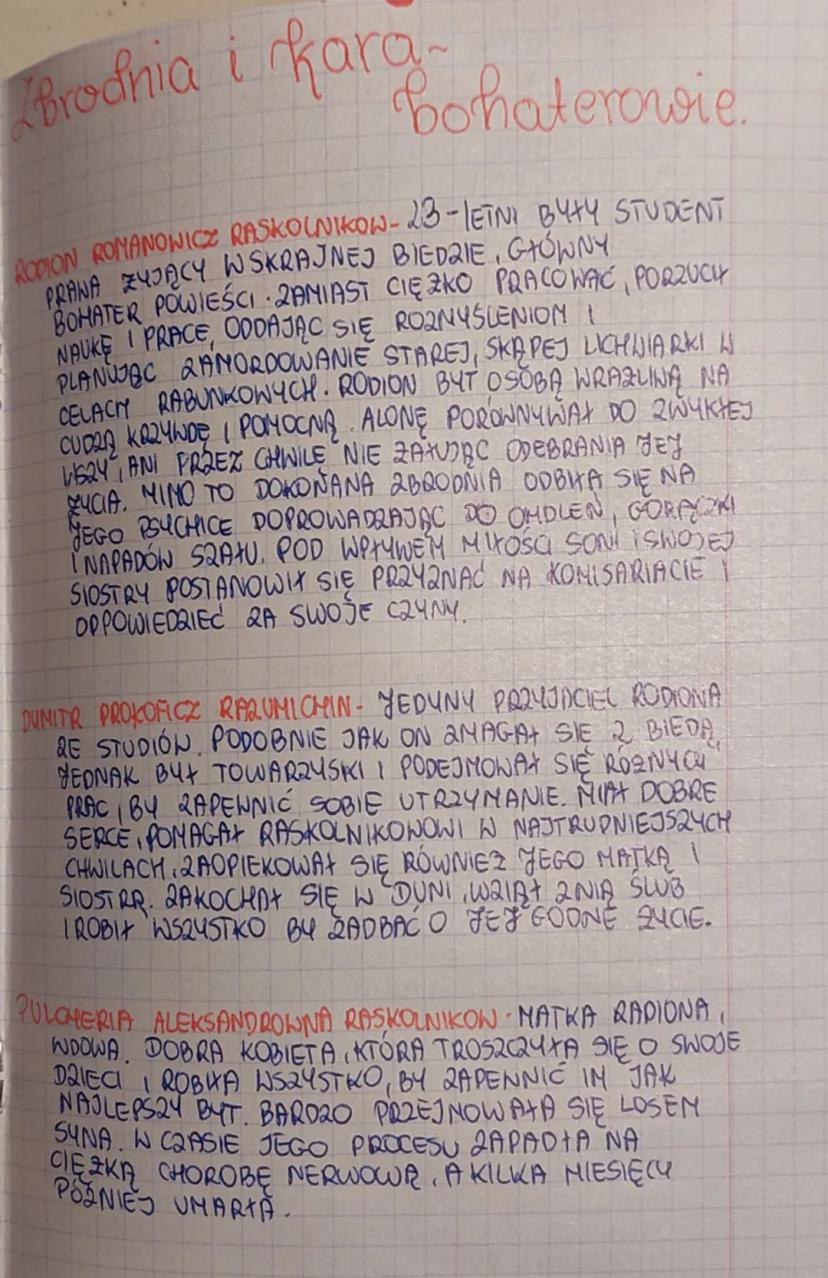 Zbrodnia i kara-
bohaterowie.
RODION ROMANOWICZ RASKOLNIKOW- 23-LETNI BYŁY STUDENT
PRAWA ŻYJĄCY W SKRAJNEJ BIEDZIE, GŁÓWNY
BOHATER POWIEŚCI. ZAMIAST CIĘŻKO PRACOWAĆ, PORZUCIŁ
NAUKĘ I PRACE, ODDAJĄC SIĘ ROZMYŚLENIOM I
PLANUJĄC ZAMORDOWANIE STAREJ, SKĄPEJ LICHWIARKI W
CELACH RABUNKOWYCH. RODION BYŁ OSOBĄ WRAŻLIWĄ NA
CUDZĄ KRZYWDĘ I POMOCNĄ. ALONĘ PORÓWNYWAŁ DO ZWYKŁEJ
WSZY, ANI PRZEZ CHWILĘ NIE ŻAŁUJĄC ODEBRANIA JEJ
ŻYCIA. MIMO TO DOKONANA ZBRODNIA ODBIŁA SIĘ NA
JEGO PSYCHICE DOPROWADZAJĄC DO OMDLEŃ, GORĄCZKI
I NAPADÓW SZAŁU. POD WPŁYWEM MIŁOŚCI SONI I SWOJEJ
SIOSTRY POSTANOWIŁ SIĘ PRZYZNAĆ NA KOMISARIACIE I
ODPOWIEDZIEĆ ZA SWOJE CZYNY.
DYMITR PROKOFICZ RAZUMICHIN- JEDYNY PRZYJACIEL RODIONA
ZE STUDIÓW. PODOBNIE JAK ON ZMAGAŁ SIĘ Z BIEDĄ,
JEDNAK BYŁ TOWARZYSKI I PODEJMOWAŁ SIĘ RÓŻNYCH
PRAC, BY ZAPEWNIĆ SOBIE UTRZYMANIE. MIAŁ DOBRE
SERCE, POMAGAŁ RASKOLNIKOWOWI W NAJTRUDNIEJSZYCH
CHWILACH, ZAOPIEKOWAŁ SIĘ RÓWNIEŻ JEGO MATKĄ I
SIOSTRĄ. ZAKOCHAŁ SIĘ W DUNI, WZIĄŁ Z NIĄ ŚLUB
I ROBIŁ WSZYSTKO BY ZADBAĆ O JEJ GODNE ŻYCIE.
PULCHERIA ALEKSANDROWNA RASKOLNIKOW- MATKA RADIONA,
WDOWA. DOBRA KOBIETA, KTÓRA TROSZCZYŁA SIĘ O SWOJE
DZIECI I ROBIŁA WSZYSTKO, BY ZAPEWNIĆ IM JAK
NAJLEPSZY BYT. BARDZO PRZEJMOWAŁA SIĘ LOSEM
SYNA. W CZASIE JEGO PROCESU ZAPADŁA NA
CIĘŻKĄ CHOROBĘ NERWOWĄ, A KILKA MIESIĘCY
PÓŹNIEJ UMARŁA.